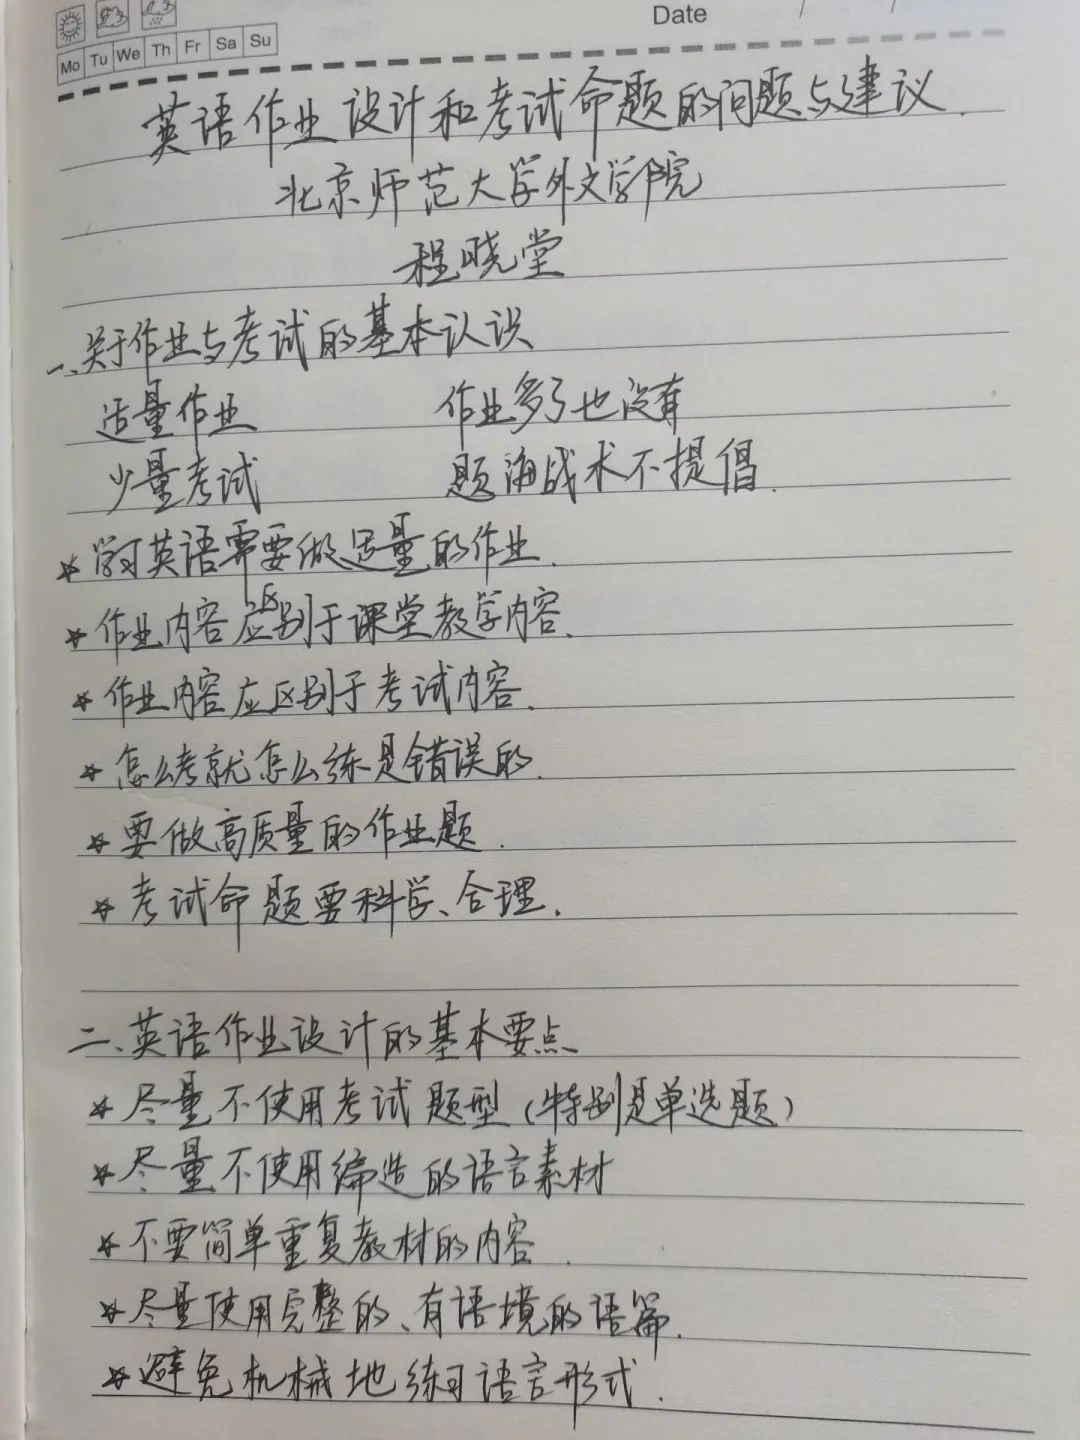 Date / /
Mo Tu We Th Fr Sa Su
英语作业设计和考试命题的问题与建议.
北京师范大学外文学院
程晓堂
一、关于作业与考试的基本认识
适量作业 作业多了也没有
少量考试 题海战术不提倡.
* 学习英语需要做适量的作业.
* 作业内容应区别于课堂教学内容.
* 作业内容应区别于考试内容.
* 怎么考就怎么练是错误的.
* 要做高质量的作业题.
* 考试命题要科学、合理.
二、英语作业设计的基本要点
* 尽量不使用考试题型(特别是单选题)
* 尽量不使用编造的语言素材
* 不要简单重复教材的内容.
* 尽量使用完整的、有语境的语篇.
* 避免机械地练习语言形式.